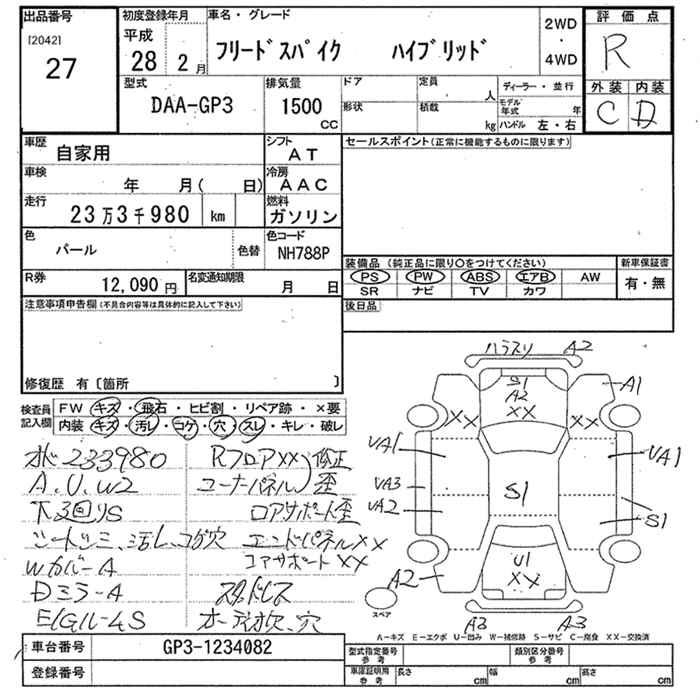 出品番号 初度登録年月 車名・グレード 2WD・4WD 評価点
[2042] 27 平成 28 2月 フリードスパイク ハイブリッド R
型式 DAA-GP3 排気量 1500 CC ドア 形状 定員 人 積載 kg ディーラー・並行 モデル年式 年 ハンドル 左・右 外装 C 内装 D
車歴 自家用 シフト AT セールスポイント(正常に機能するものに限ります)
車検 年 月( 日) 冷房 AAC
走行 23万3千980 km 燃料 ガソリン
色 パール 色替 色コード NH788P 装備品 (純正品に限り○をつけてください) 新車保証書
PS PW ABS エアB AW 有・無
SR ナビ TV カワ
R券 12,090円 名変通知期限 月 日 後日品
注意事項申告欄(不具合内容等は具体的に記入して下さい)
修復歴 有〔箇所 〕
検査員記入欄 FW キズ・飛石・ヒビ割・リペア跡・×要
内装 キズ・汚レ・コゲ・穴・スレ・キレ・破レ
233980 RフロアXX 修正
A.U.W2 コーナーパネル 歪
下回りS ロアサポート歪
シートシミ、汚レ、コゲ穴 エンドパネルXX
WカバーA コアサポートXX
DミラーA スタッドレス
オーディオ欠、穴
ハラスリ A2
S1 A2 XX A1
XX XX
UA1 UA1
UA3 S1
UA2 S1
U1 XX
A2
スペア A3 A3
A-キズ E-エクボ U-凹み W-補修跡 S-サビ C-腐食 XX-交換済
車台番号 GP3-1234082 型式指定番号 参考 類別区分番号 参考
登録番号 車庫証明用 参考 長さ cm 幅 cm 高さ cm